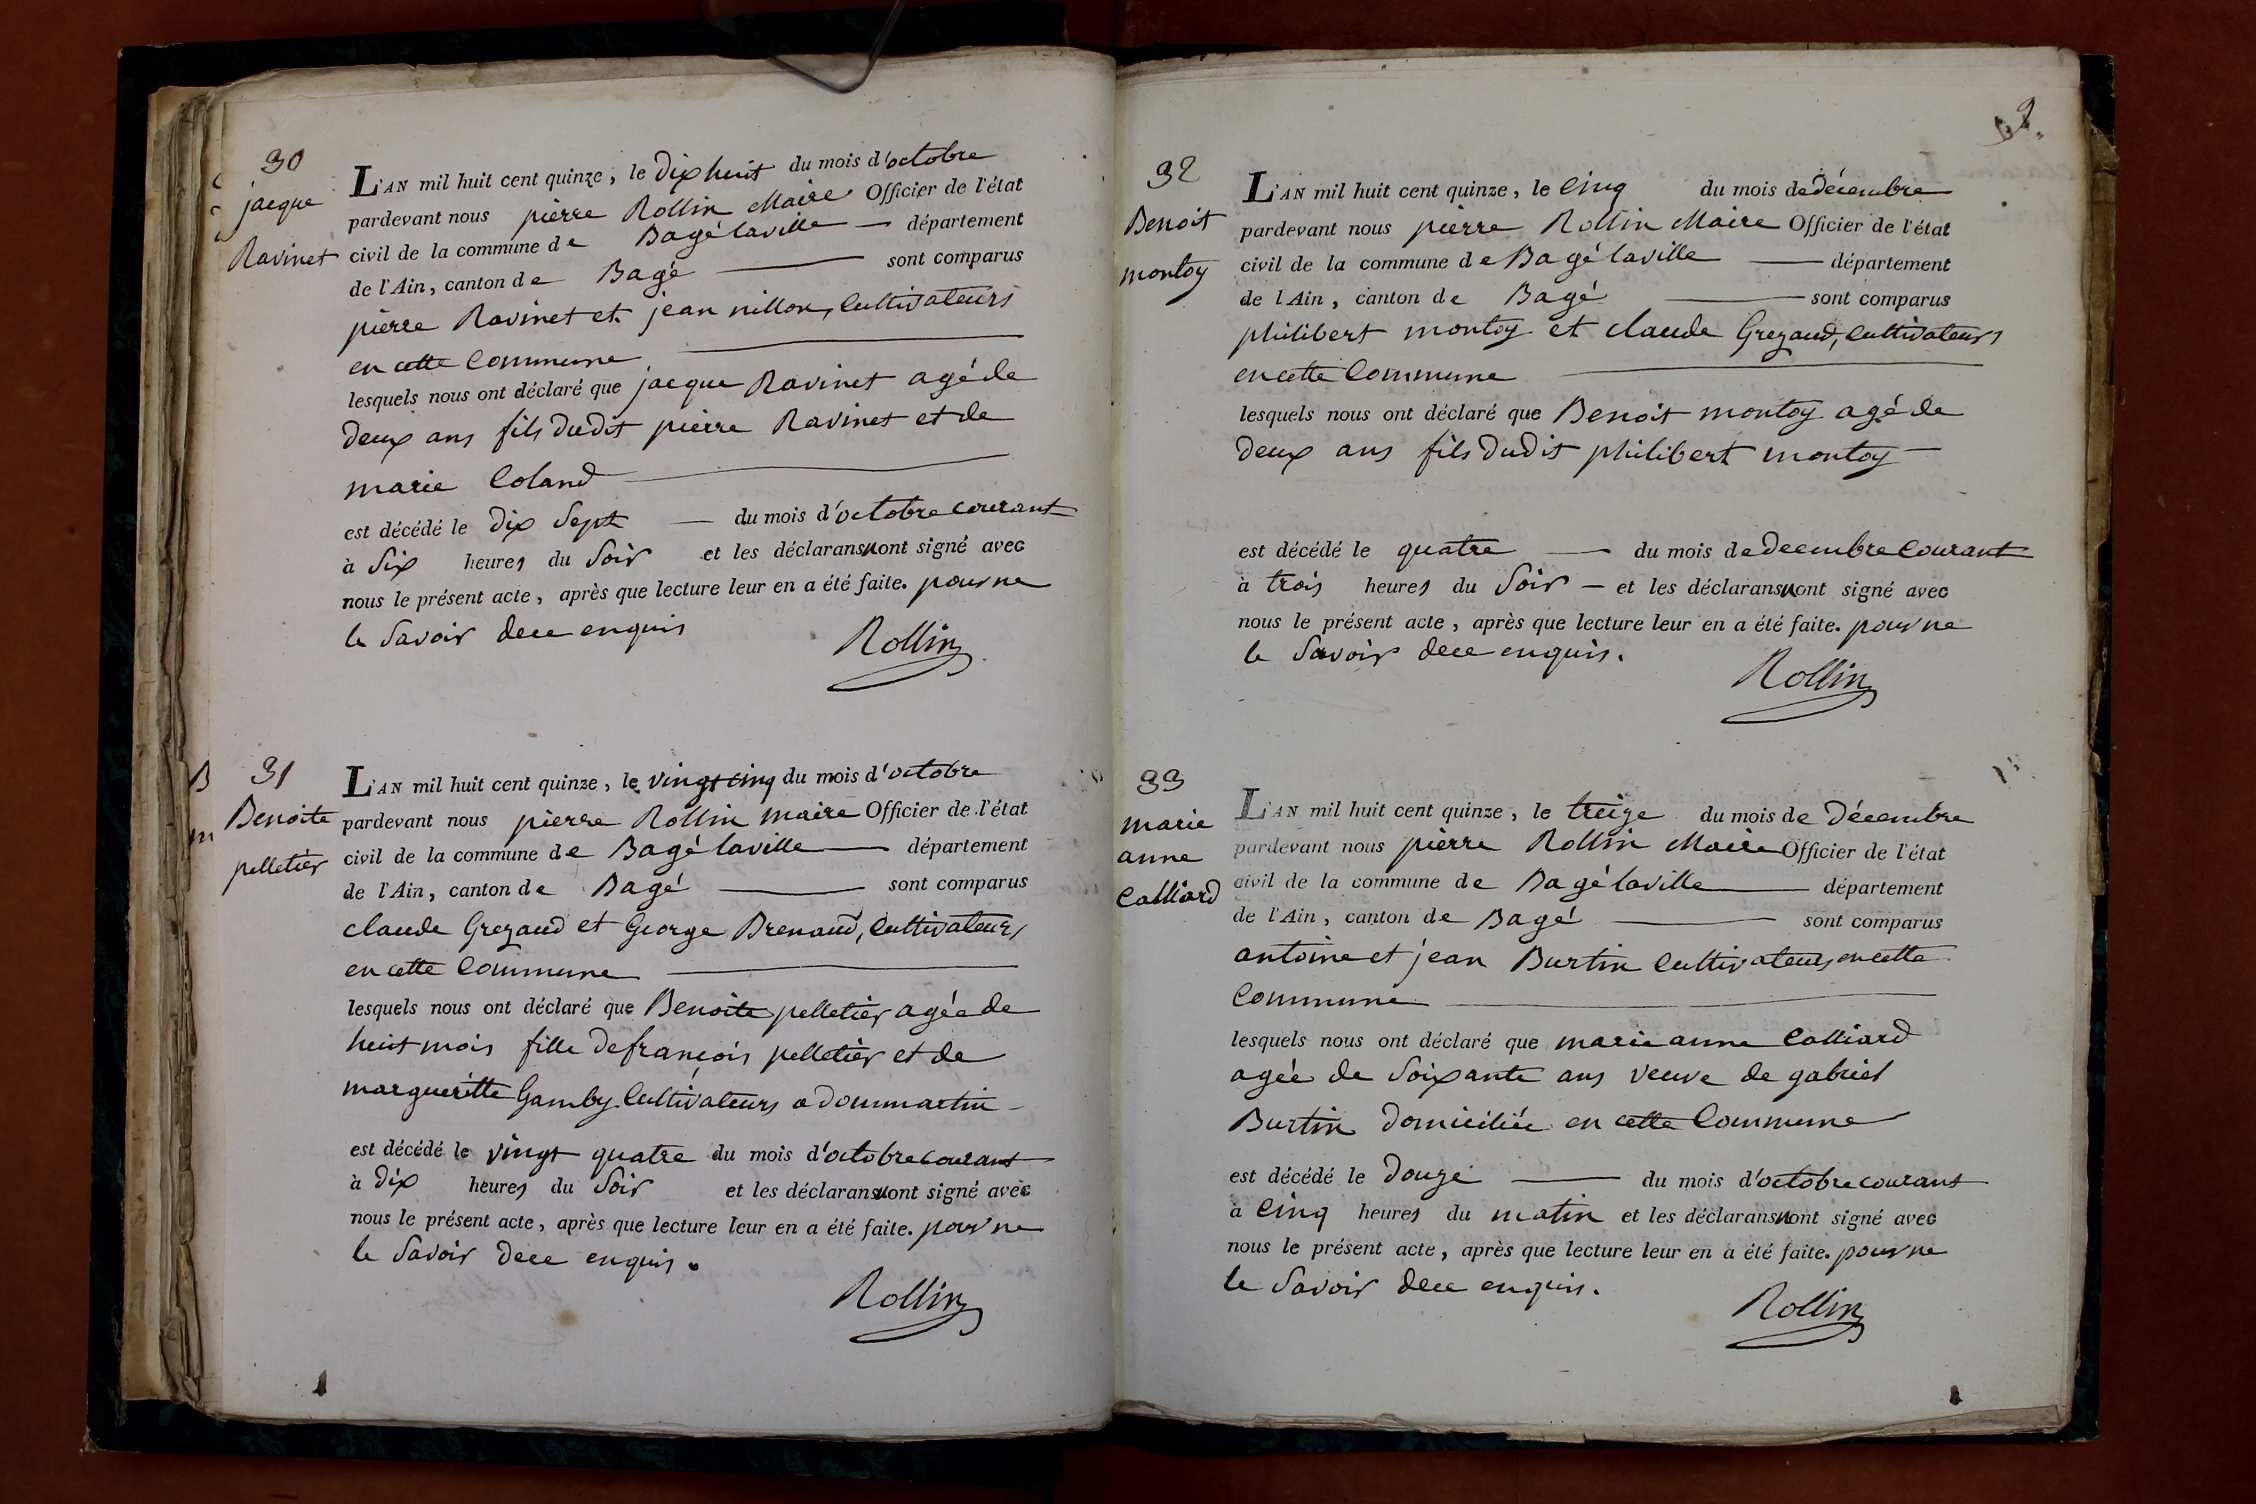 30
jacque
Ravinet
L'AN mil huit cent quinze, le dix huit du mois d'octobre
pardevant nous pierre Rollin Maire Officier de l'état
civil de la commune de Bagé laville — département
de l'Ain, canton de Bagé — sont comparus
pierre Ravinet et jean nillon, Cultivateurs
en cette Commune —
lesquels nous ont déclaré que jacque Ravinet agé de
deux ans fils dudit pierre Ravinet et de
marie Coland —
est décédé le dix Sept — du mois d'octobre courant
à Six heures du Soir et les déclarans nont signé avec
nous le présent acte, après que lecture leur en a été faite. pour ne
le Savoir dece enquis
Rollin
31
Benoite
pelletier
L'AN mil huit cent quinze, le vingt cinq du mois d'octobre
pardevant nous pierre Rollin maire Officier de l'état
civil de la commune de Bagé laville — département
de l'Ain, canton de Bagé — sont comparus
claude Grezaud et George Brenaud, Cultivateurs
en cette Commune —
lesquels nous ont déclaré que Benoite pelletier agée de
huit mois fille de françois pelletier et de
margueritte Gamby Cultivateurs a dommartin —
est décédé le vingt quatre du mois d'octobre courant
à dix heures du Soir et les déclarans nont signé avec
nous le présent acte, après que lecture leur en a été faite. pour ne
le Savoir dece enquis.
Rollin
32
Benoit
montoy
L'AN mil huit cent quinze, le Cinq du mois de décembre
pardevant nous pierre Rollin Maire Officier de l'état
civil de la commune de Bagé laville — département
de l'Ain, canton de Bagé — sont comparus
philibert montoy et claude Grezaud, Cultivateurs
en cette Commune —
lesquels nous ont déclaré que Benoit montoy agé de
deux ans fils dudit philibert montoy —
est décédé le quatre — du mois de decembre Courant
à trois heures du Soir — et les déclarans nont signé avec
nous le présent acte, après que lecture leur en a été faite. pour ne
le Savoir dece enquis.
Rollin
33
marie
anne
Calliard
L'AN mil huit cent quinze, le treize du mois de décembre
pardevant nous pierre Rollin Maire Officier de l'état
civil de la commune de Bagé laville — département
de l'Ain, canton de Bagé — sont comparus
antoine et jean Burtin Cultivateurs en cette
Commune —
lesquels nous ont déclaré que marie anne Calliard
agée de Soixante ans veuve de gabriel
Burtin domiciliée en cette Commune
est décédé le douze — du mois d'octobre courant
à Cinq heures du matin et les déclarans nont signé avec
nous le présent acte, après que lecture leur en a été faite. pour ne
le Savoir dece enquis.
Rollin